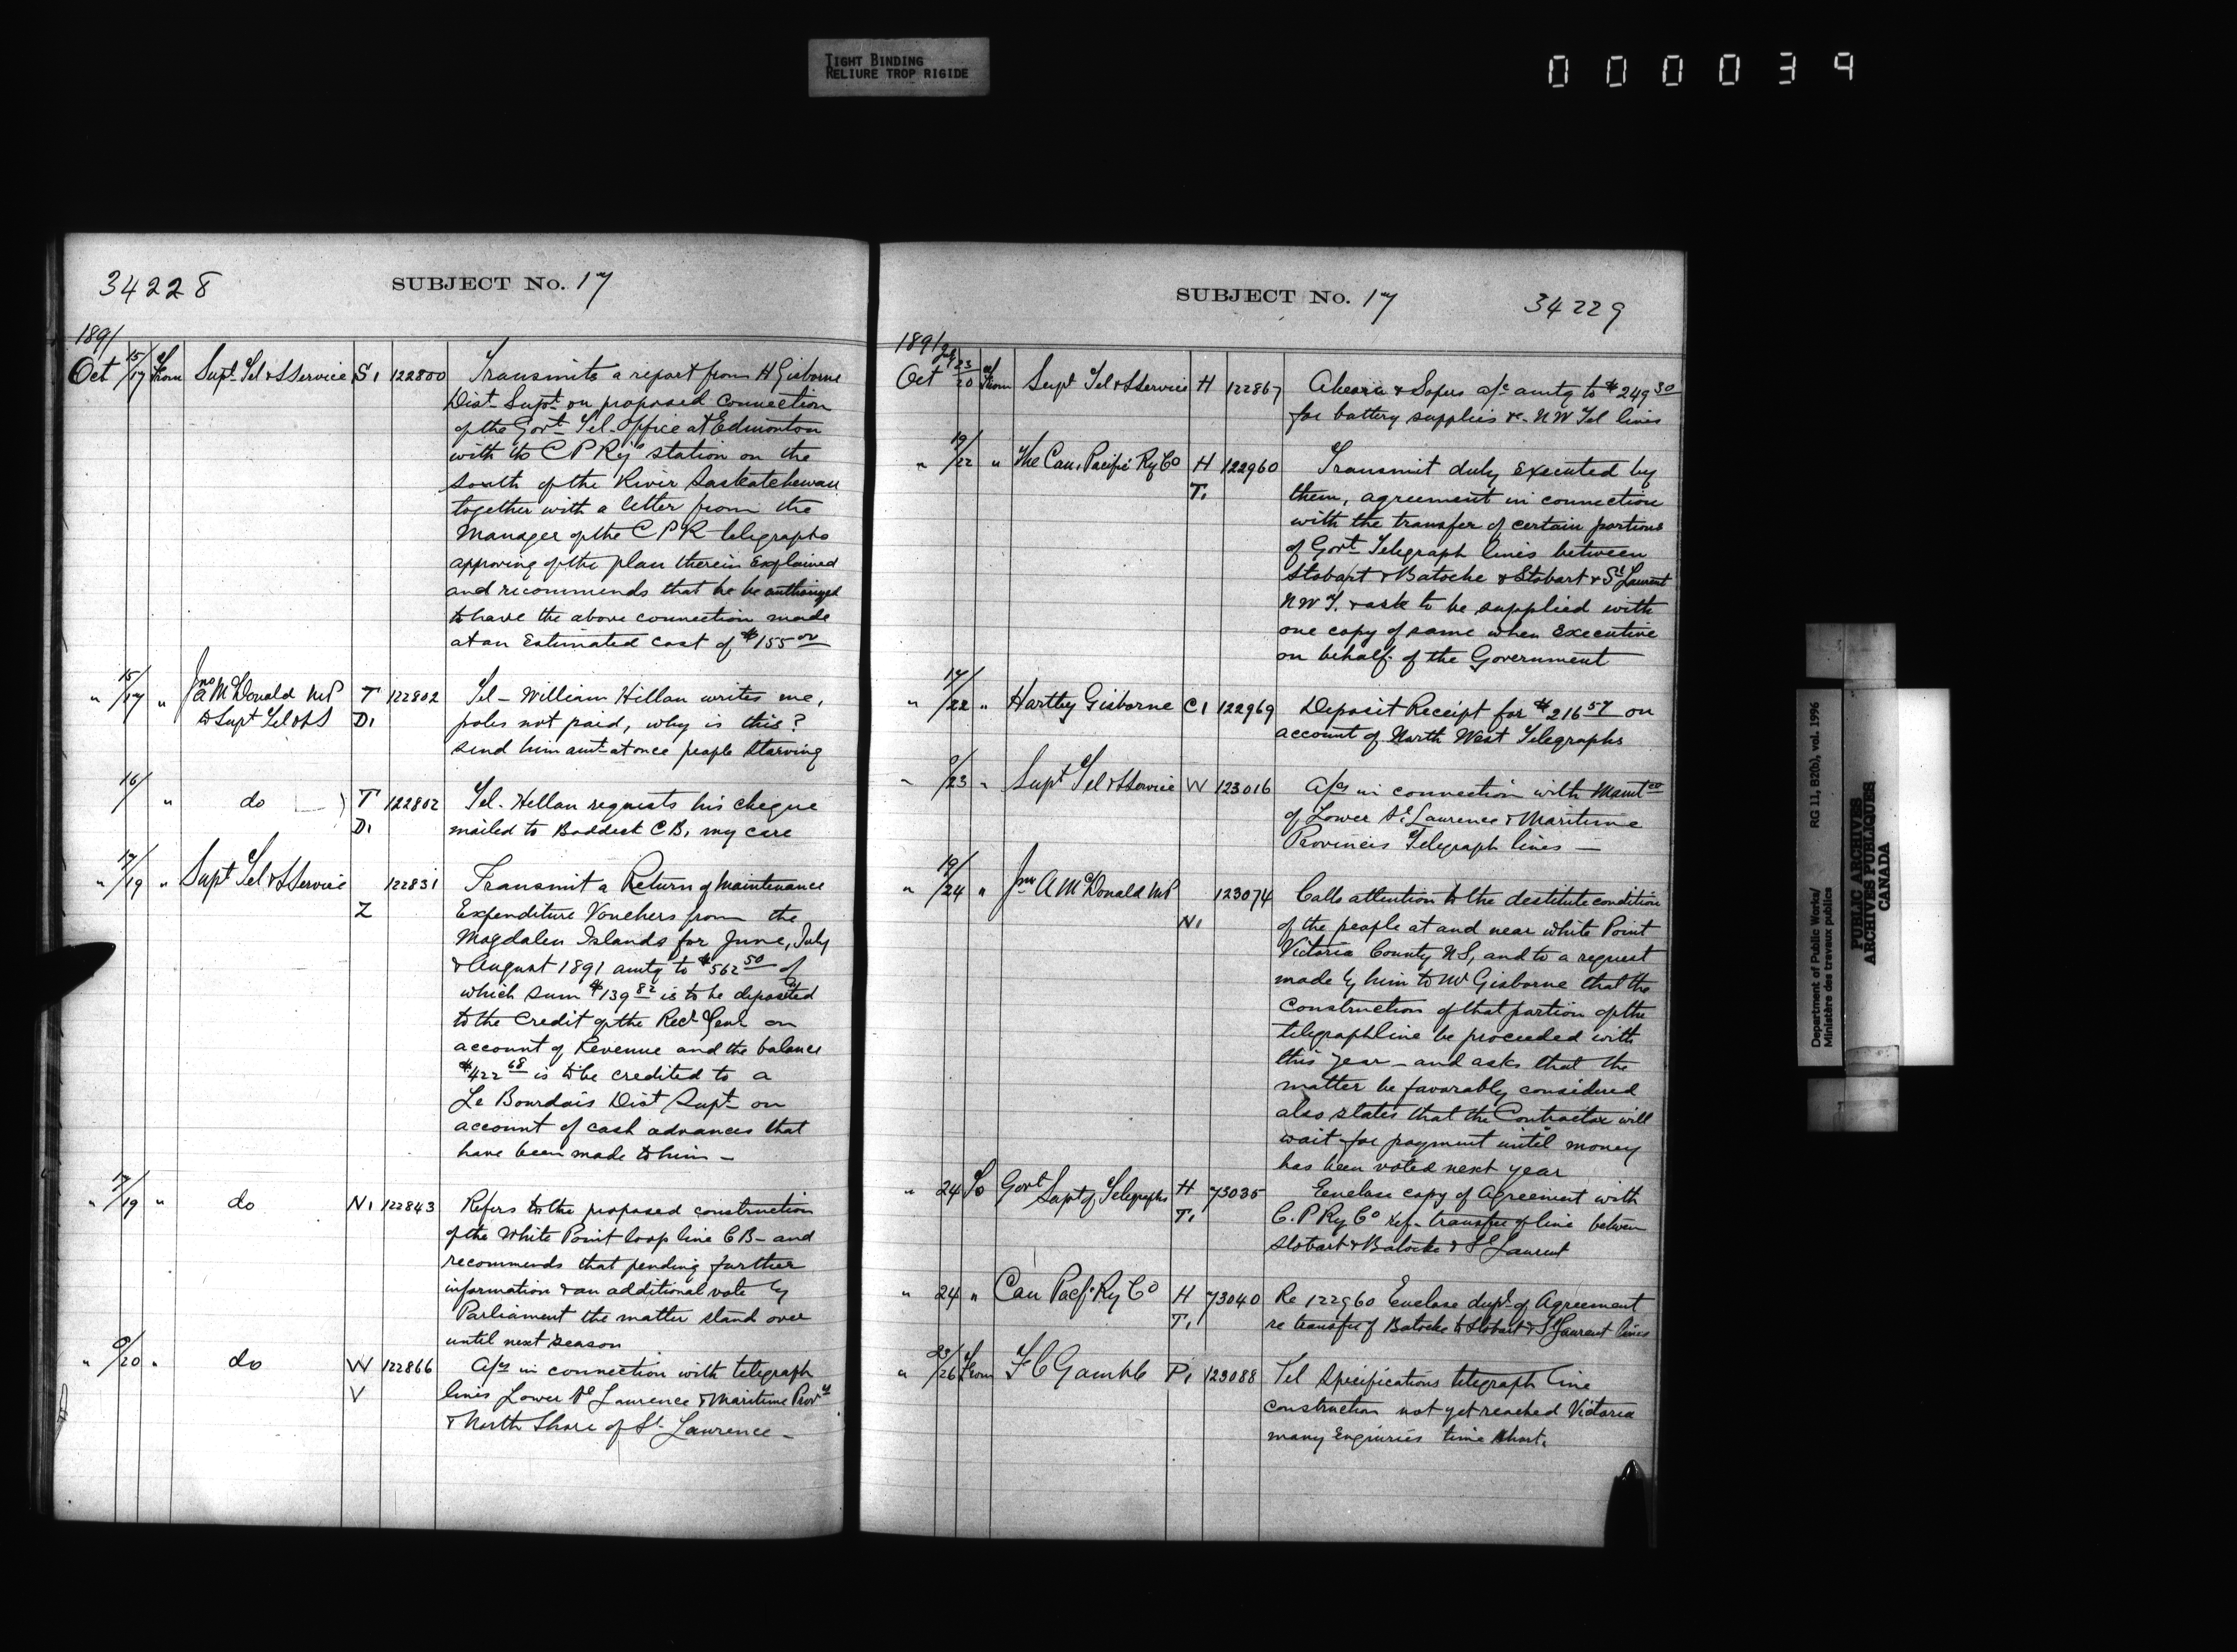 TIGHT BINDING
RELIURE TROP RIGIDE
000039
34228
SUBJECT No. 17
1891
Oct 15/17 From Supt Tel & S Service S1 122800 Transmits a report from H Gisborne
Dist Supt on proposed connection
of the Govt Tel. Office at Edmonton
with to C P Rys station on the
south of the River Saskatchewan
together with a letter from the
Manager of the C P R telegraphs
approving of the plan therein Explained
and recommends that he be authorized
to have the above connection made
at an Estimated cost of $155 00
" 15/17 " Jno A McDonald MP T 122802 Tel - William Hillan writes me,
to Supt Tel & S D1 poles not paid, why is this?
send him amt at once people starving
16/ " do T 122802 Tel. Hellan requests his cheque
D1 mailed to Baddeck C.B, my care
" 17/19 " Supt Tel & S Service 122831 Transmit a Return of Maintenance
Z Expenditure Vouchers from the
Magdalen Islands for June, July
& August 1891 amtg to $562 50 of
which sum $139 82 is to be deposited
to the Credit of the Recr Genl on
account of Revenue and the balance
$422 68 is to be credited to a
Le Bourdais Dist Supt on
account of cash advances that
have been made to him -
" 17/19 " do N1 122843 Refers to the proposed construction
of the White Point loop line CB - and
recommends that pending further
information & an additional vote by
Parliament the matter stand over
until next season
" 20 " do W 122866 A/cs in connection with telegraph
V lines Lower St Laurence & Maritime Provs
& North Shore of St. Lawrence -
SUBJECT No. 17
34229
1891
Oct July 23/20 of From Supt Tel & S Service H 122867 Ahearn & Sopers a/c amtg to $249 30
for battery supplies &c - NW Tel lines
" 19/22 " The Can. Pacific Ry Co H 122960 Transmit duly Executed by
T1 them, agreement in connection
with the transfer of certain portions
of Govt Telegraph lines between
Stobart & Batoche & Stobart & St Laurent
NWT. & ask to be supplied with
one copy of same when Executive
on behalf of the Government
" 17/22 " Hartley Gisborne C1 122969 Deposit Receipt for $216 57 on
account of North West Telegraphs
" /23 " Supt Tel & S Service W 123016 A/cs in connection with Maintce
of Lower St. Laurence & Maritime
Provinces Telegraph lines -
" 19/24 " Jno A McDonald MP 123074 Calls attention to the destitute condition
N1 of the people at and near White Point
Victoria County NS, and to a request
made by him to Mr Gisborne that the
Construction of that portion of the
telegraph line be proceeded with
this year - and asks that the
matter be favorably considered
also states that the Contractor will
wait for payment until money
has been voted next year
" 24 To Govt Supt of Telegraphs H 73035 Eenclose copy of Agreement with
T1 C. P Ry Co ref - transfer of line between
Stobart & Batoche & St Laurent
" 24 " Can Pacf. Ry Co H 73040 Re 122960 Enclose dupl. of Agreement
T1 re transfer of Batoche to Stobart & St Laurent lines
" 23/26 From F C Gamble P1 123088 Tel Specifications telegraph line
construction not yet reached Victoria
many Enquiries time short.
Department of Public Works/
Ministère des travaux publics
RG 11, B2(b), vol. 1996
PUBLIC ARCHIVES
ARCHIVES PUBLIQUES
CANADA